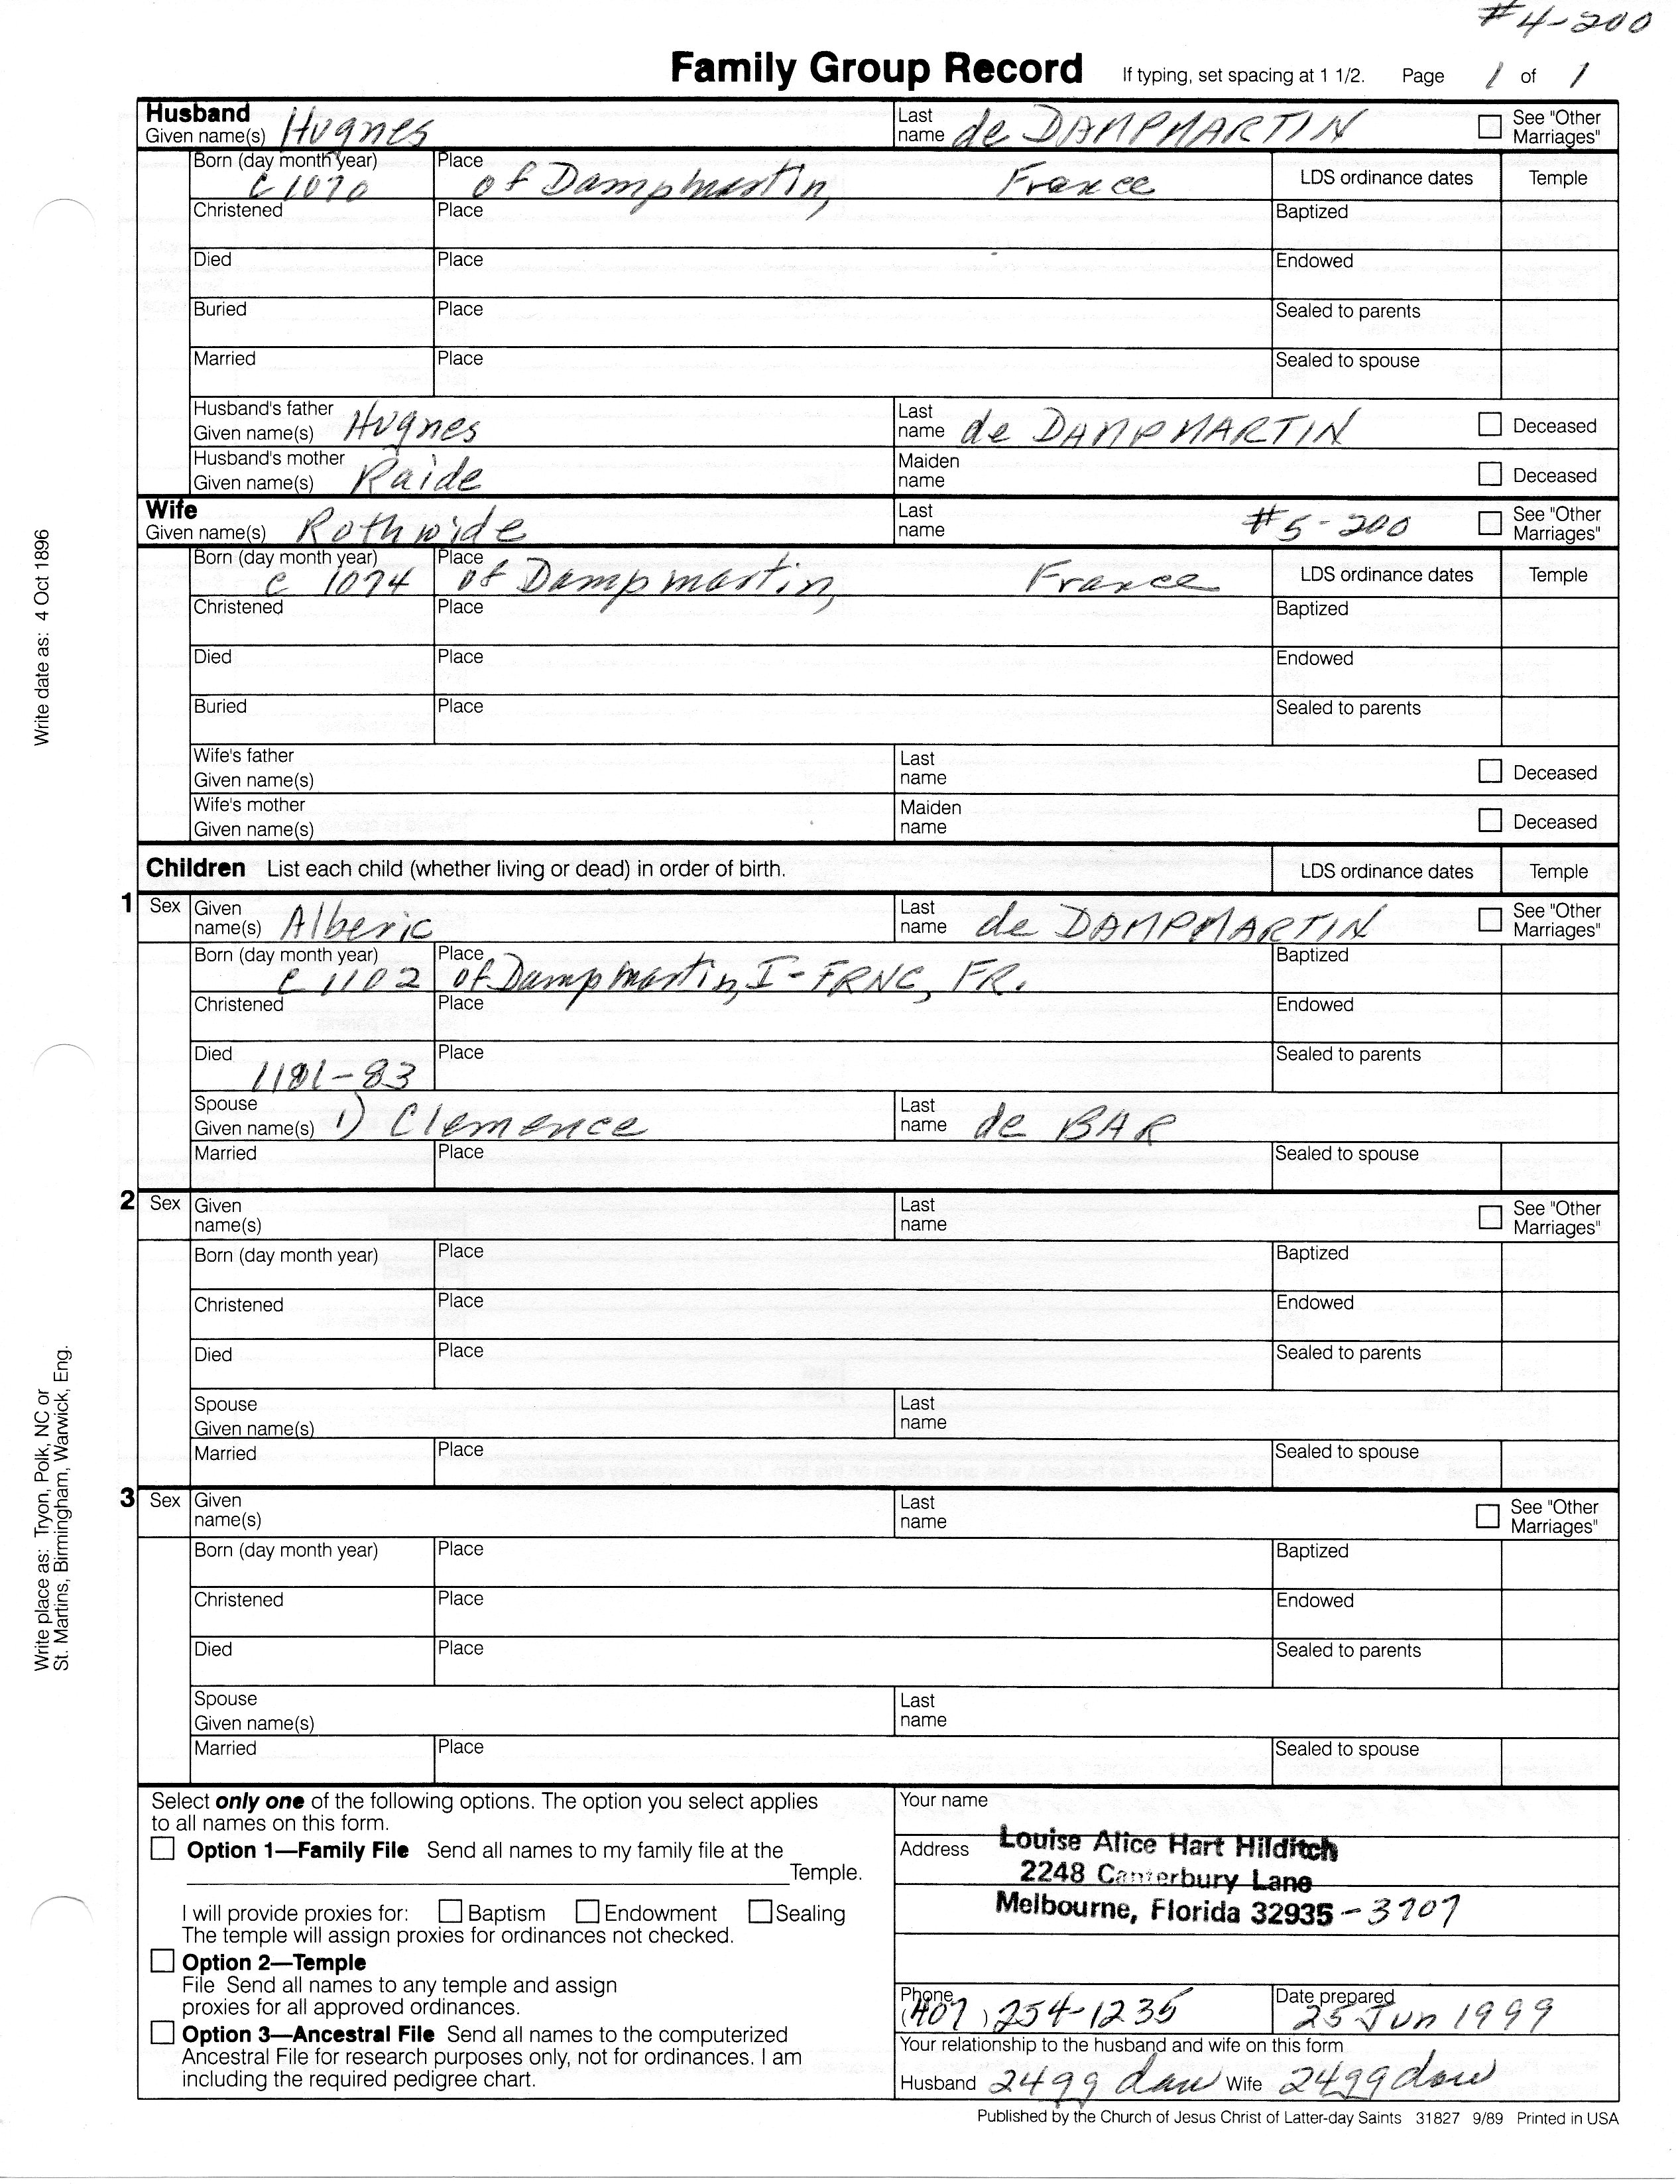 #4-200
Family Group Record If typing, set spacing at 1 1/2. Page 1 of 1
Husband
Given name(s) Hugnes Last name de DAMPMARTIN See "Other Marriages"
Born (day month year) c 1070 Place of Dampmartin, France LDS ordinance dates Temple
Christened Place Baptized
Died Place Endowed
Buried Place Sealed to parents
Married Place Sealed to spouse
Husband's father Given name(s) Hugnes Last name de DAMPMARTIN Deceased
Husband's mother Given name(s) Raide Maiden name Deceased
Wife
Given name(s) Rothwide Last name #5-200 See "Other Marriages"
Born (day month year) c 1074 Place of Dampmartin, France LDS ordinance dates Temple
Christened Place Baptized
Died Place Endowed
Buried Place Sealed to parents
Wife's father Given name(s) Last name Deceased
Wife's mother Given name(s) Maiden name Deceased
Children List each child (whether living or dead) in order of birth. LDS ordinance dates Temple
1 Sex Given name(s) Alberic Last name de DAMPMARTIN See "Other Marriages"
Born (day month year) c 1102 Place of Dampmartin, I-FRNC, FR. Baptized
Christened Place Endowed
Died 1181-83 Place Sealed to parents
Spouse Given name(s) 1) Clemence Last name de BAR
Married Place Sealed to spouse
2 Sex Given name(s) Last name See "Other Marriages"
Born (day month year) Place Baptized
Christened Place Endowed
Died Place Sealed to parents
Spouse Given name(s) Last name
Married Place Sealed to spouse
3 Sex Given name(s) Last name See "Other Marriages"
Born (day month year) Place Baptized
Christened Place Endowed
Died Place Sealed to parents
Spouse Given name(s) Last name
Married Place Sealed to spouse
Select only one of the following options. The option you select applies
to all names on this form.
Option 1—Family File Send all names to my family file at the
Temple.
I will provide proxies for: Baptism Endowment Sealing
The temple will assign proxies for ordinances not checked.
Option 2—Temple
File Send all names to any temple and assign
proxies for all approved ordinances.
Option 3—Ancestral File Send all names to the computerized
Ancestral File for research purposes only, not for ordinances. I am
including the required pedigree chart.
Your name
Address Louise Alice Hart Hilditch
2248 Canterbury Lane
Melbourne, Florida 32935-3707
Phone (407) 254-1235 Date prepared 25 Jun 1999
Your relationship to the husband and wife on this form
Husband 24gg dau Wife 24gg dau
Published by the Church of Jesus Christ of Latter-day Saints 31827 9/89 Printed in USA
Write date as: 4 Oct 1896
Write place as: Tryon, Polk, NC or
St. Martins, Birmingham, Warwick, Eng.